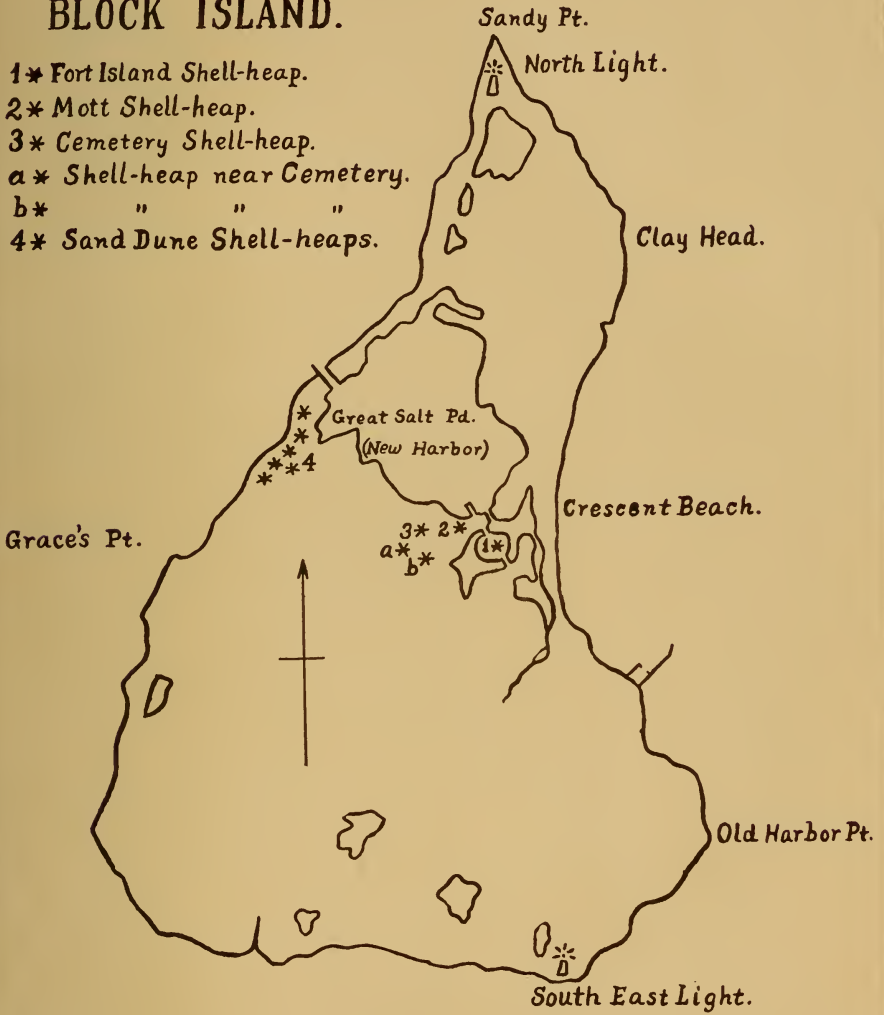 BLOCK ISLAND.
1* Fort Island Shell-heap.
2* Mott Shell-heap.
3* Cemetery Shell-heap.
a* Shell-heap near Cemetery.
b* " " "
4* Sand Dune Shell-heaps.
Sandy Pt.
North Light.
Clay Head.
Great Salt Pd.
(New Harbor)
4
Crescent Beach.
3* 2*
1*
a*
b*
Grace's Pt.
Old Harbor Pt.
South East Light.